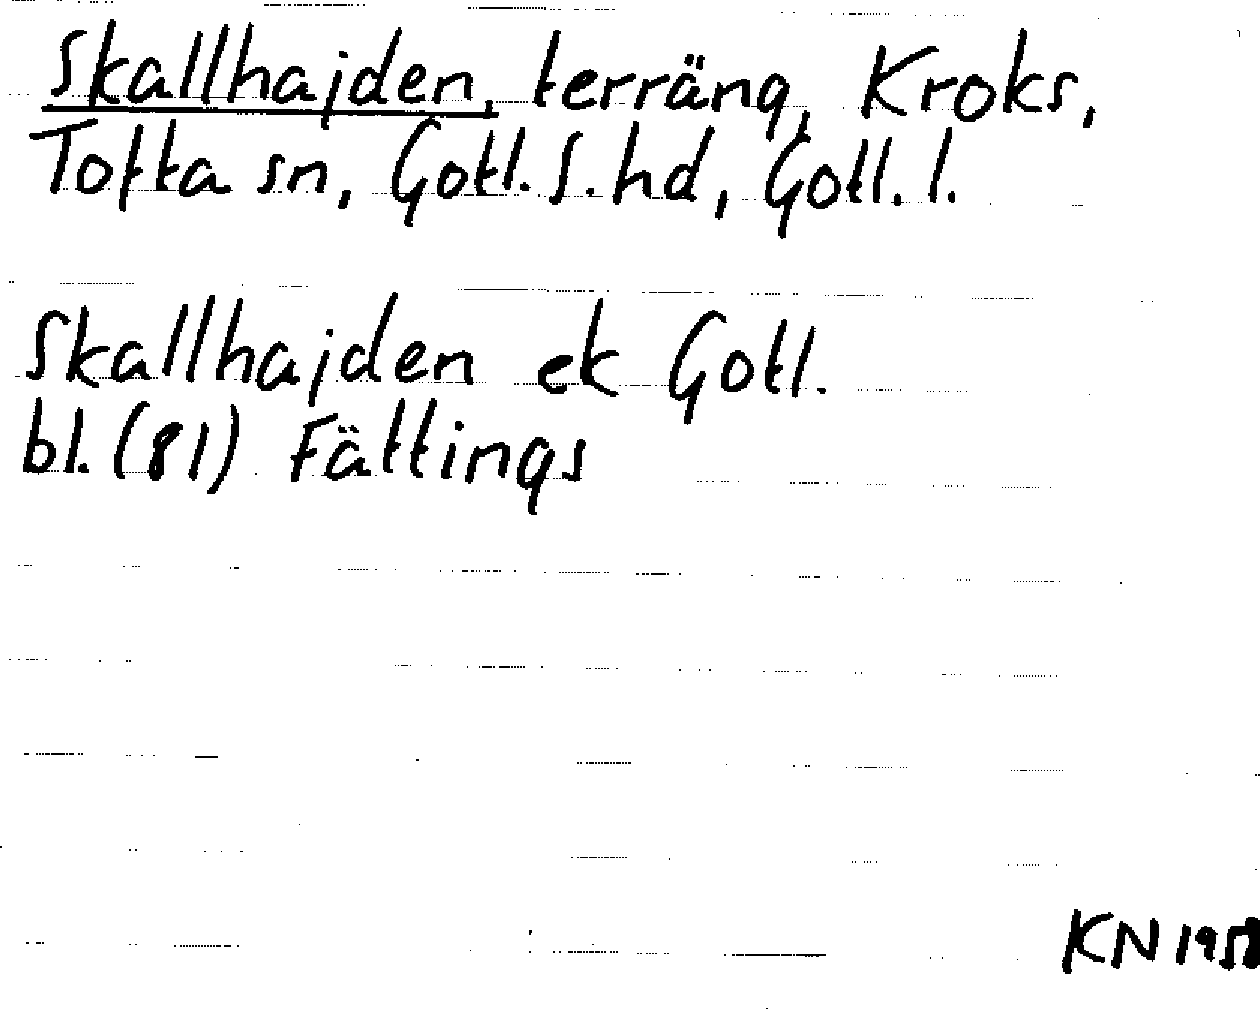 Skallhajden, terräng, Kroks,
Tofta sn, Gotl. S. hd, Gotl. l.
Skallhajden ek Gotl.
bl. (81) Fättings
KN